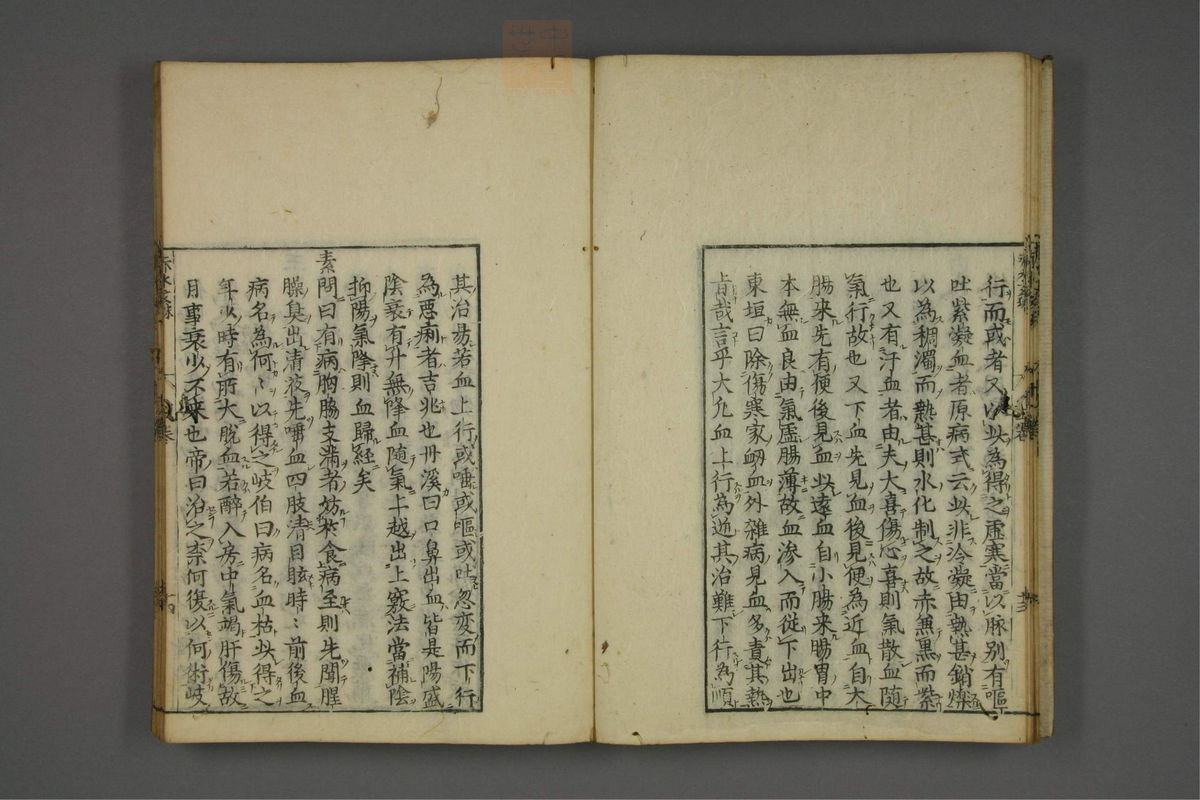 行而或者又以此為得之虚寒當以脉別有嘔
吐紫凝血者原病式云此非冷凝由熱甚銷爍
以為稠濁而熱甚則水化制之故赤兼黑而紫
也又有汗血者由夫大喜傷心喜則氣散血隨
氣行故也又下血先見血後見便為近血自大
腸来先有便後見血此遠血自小腸来腸胃中
本無血良由氣虚腸薄故血滲入而従下出也
東垣曰除傷寒家衂血外雜病見血多責其熱
肯哉言乎大凢血上行為逆其治難下行為順
其治易若血上行或唾或嘔或吐忽変而下行
為悪痢者吉兆也丹溪曰口鼻出血皆是陽盛
陰衰有升無降血随氣上越出上竅法當補陰
抑陽氣降則血歸経矣
素問曰有病胸脇支満者妨於食病至則先聞腥
臊臭出清液先唾血四肢清目眩時〻前後血
病名為何〻以得之岐伯曰病名血枯此得之
年少時有所大脱血若醉入房中氣竭肝傷故
月事衰少不来也帝曰治之柰何復以何術岐